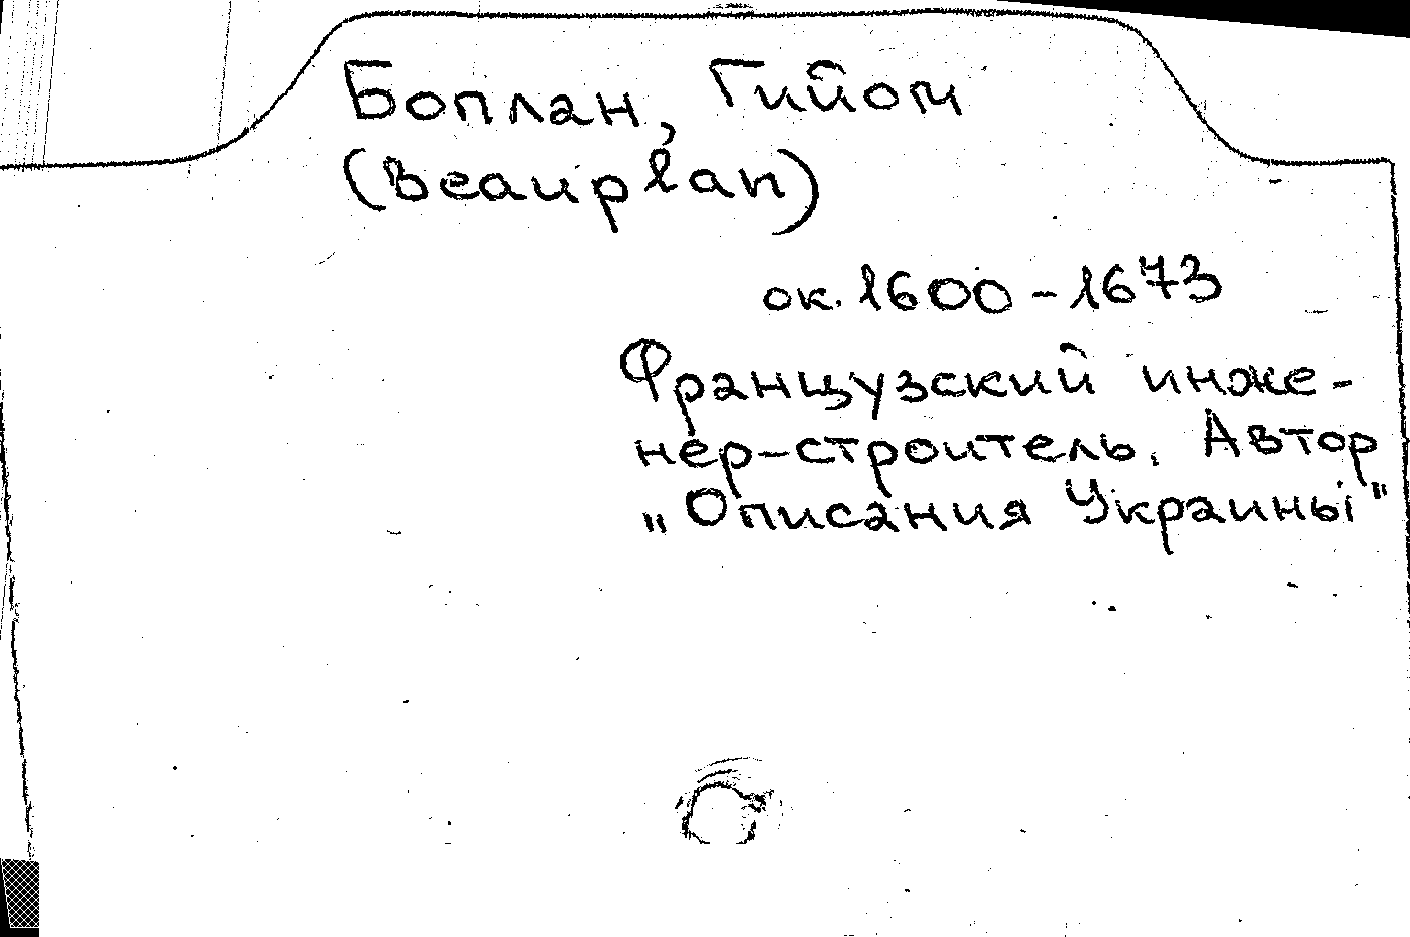 Боплан, Гийом
(Beauplan)
ок. 1600-1673
Французский инже-
нер-строитель. Автор
„Описания Украины"